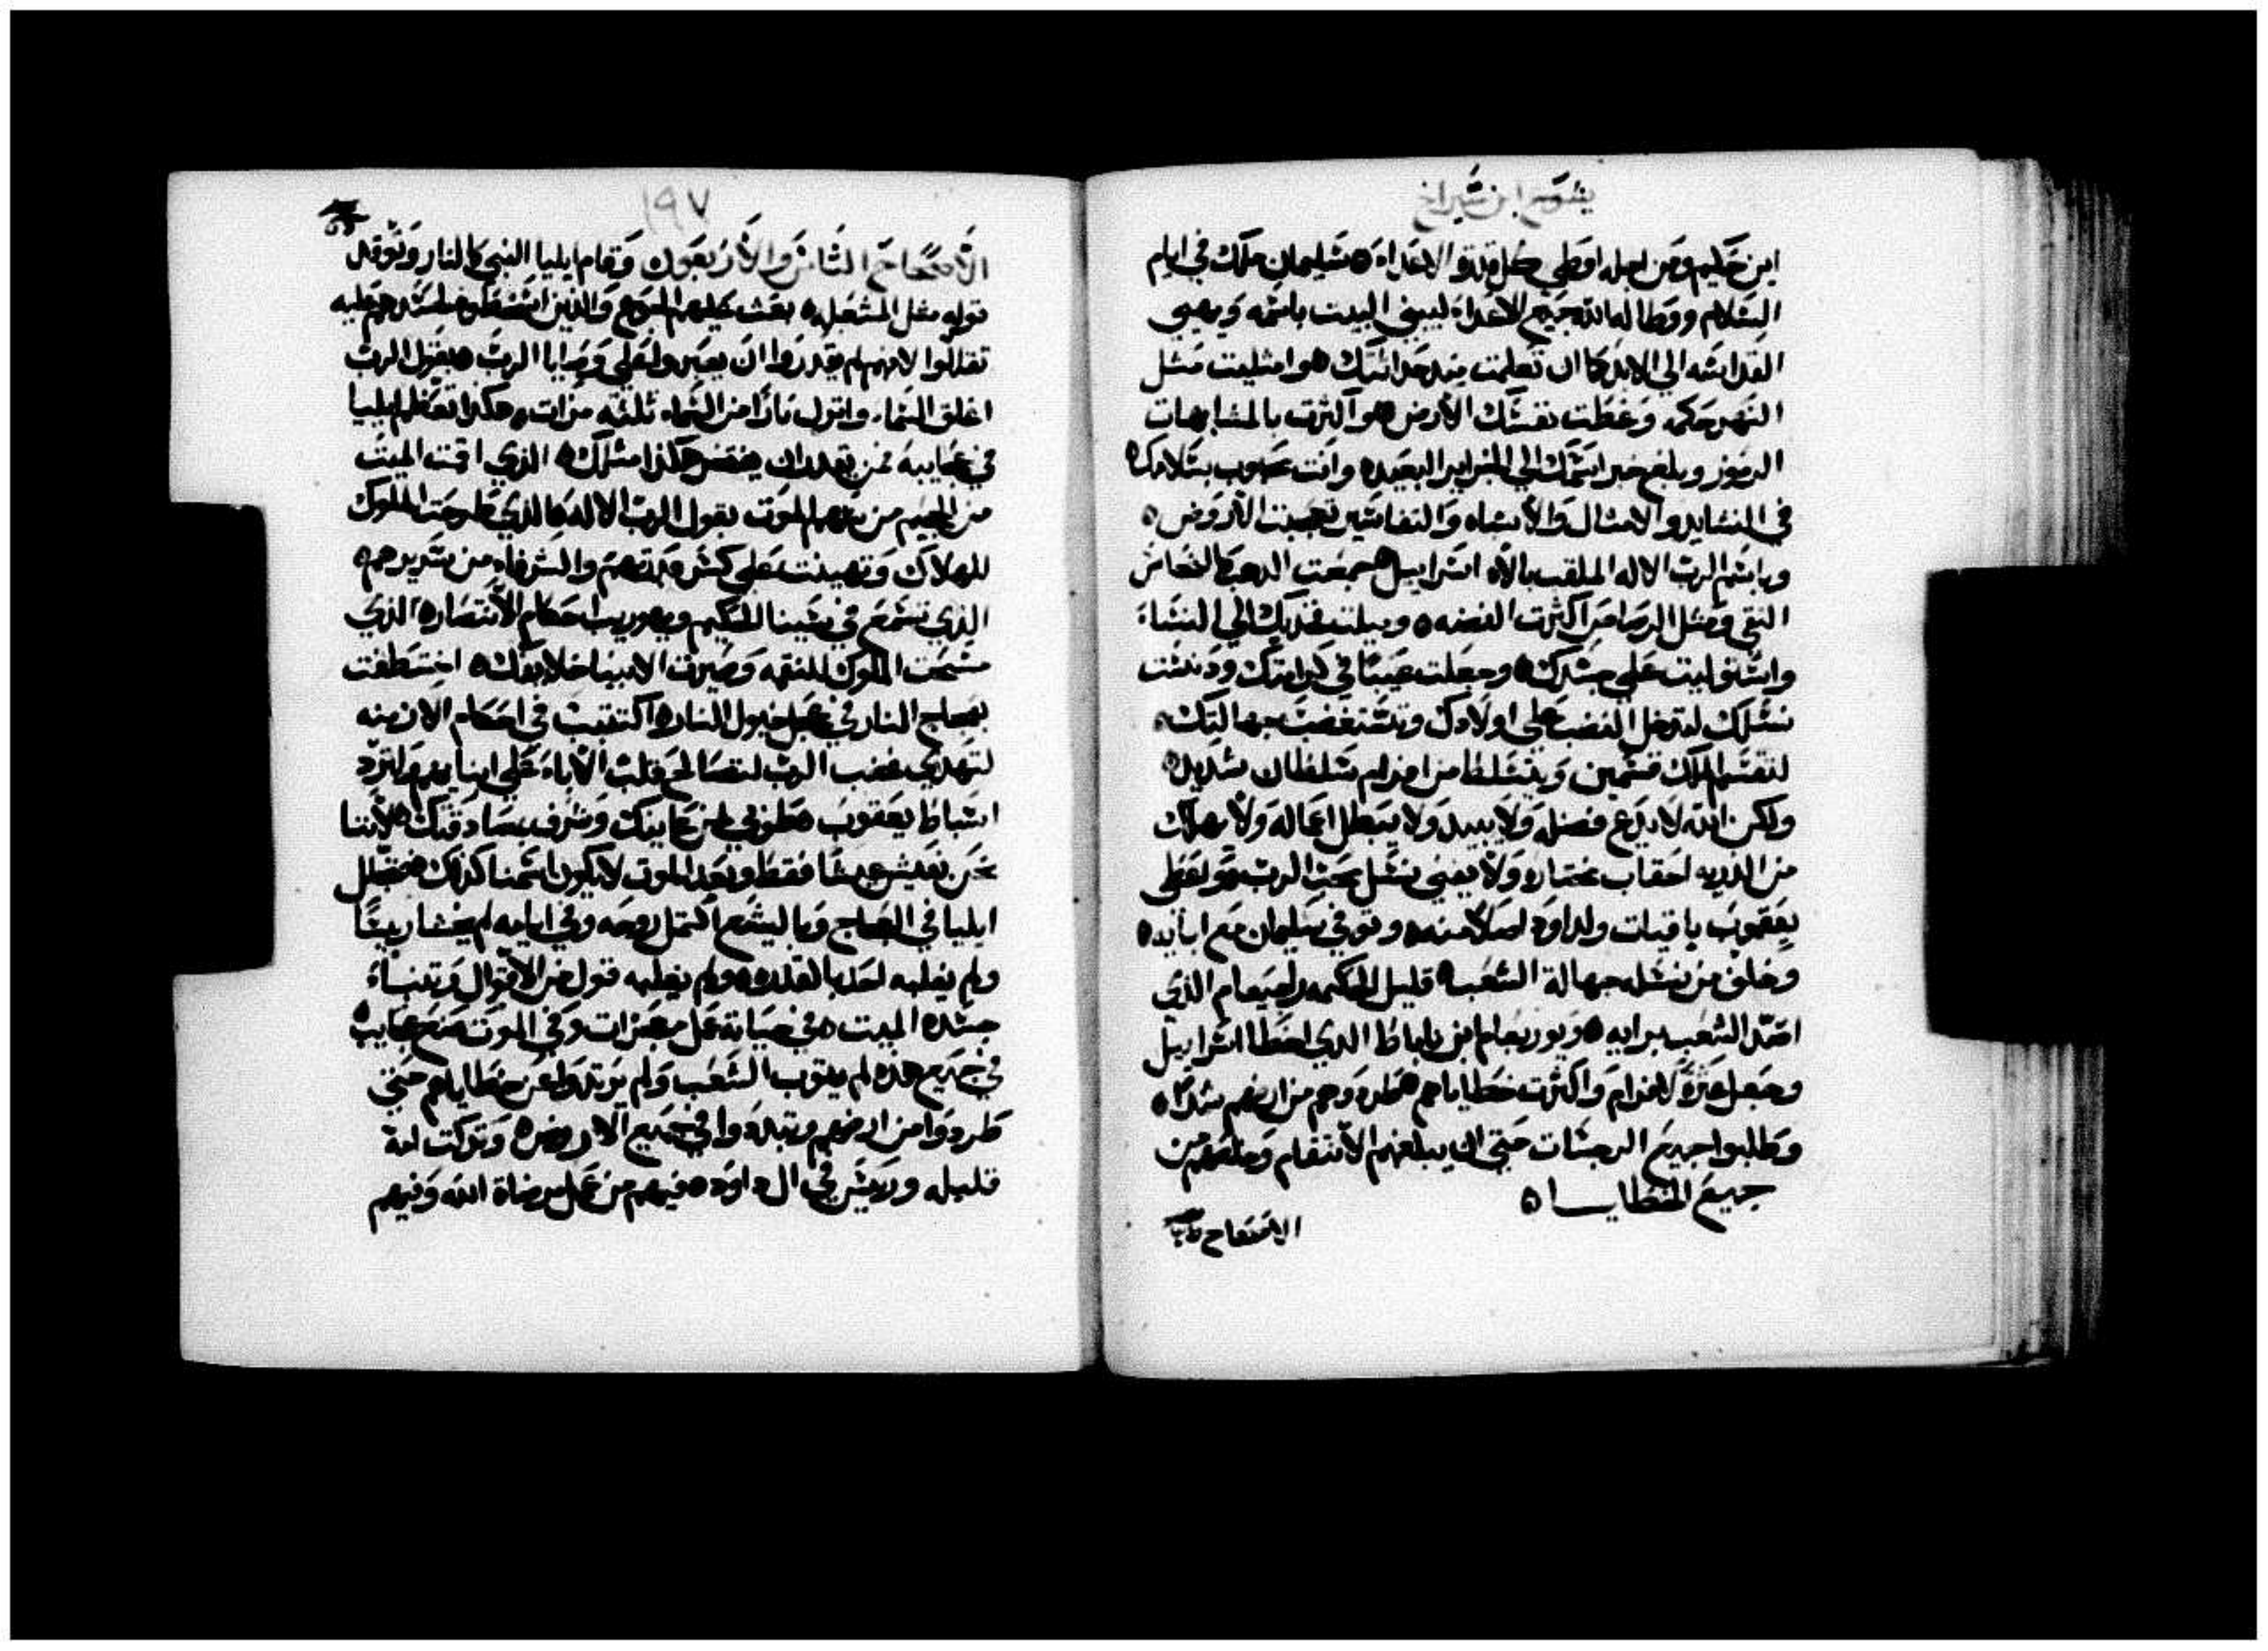 يشوع ابن شيراخ
ابن حكيم ومن اجله اوطي كل قدرة الاعداء ه سليمان ملك في ايام
السلام ووطا له الله جميع الاعداء ليبني البيت باسمه ويهيي
القداسه الي الابد كما ان تعلمت منذ حداثتك ه وامتليت مثل
النهر حكمه وغطت نفسك الارض ه واكثرت بالمشابهات
الرموز وبلغ خبر اسمك الي الجزاير البعيده وانت محبوب بسلامك ه
في النشايد والامثال والاشباه والتفاسير تعجبت الاروض ه
وباسم الرب الاله الملقب بالاه اسراييل ه جمعت الدهب كالنحاس
النقي ومثل الرصاص اكثرت الفضه ه وميلت فخديك الي النساء
واستوليت علي جسدك ه وجعلت عيبا في كرامتك ودنست
نسلك لتدخل الغضب علي اولادك وتستغضب جهالتك ه
لتقسم الملك قسمين ويتسلط من افرام سلطان شديد ه
ولكن الله لا يدع فضله ولا يبيد ولا يبطل اعماله ولا يهلك
من الذريه احقاب مختاره ولا يفني نسل محب الرب ه واعطي
يعقوب باقيات ولداود اصلا منه ه وتوفي سليمان مع ابايه ه
وخلف من نسله جهالة الشعب ه قليل الحكمه راحبعام الذي
اضل الشعب برايه ه ويوربعام ابن ناباط الدي اخطا اسراييل
وجعل عثرة لافرام واكثرت خطاياهم ه طردوهم من ارضهم شدكا ه
وطلبوا جميع الرجسات حتي ان يبلغهم الانتقام وخلصهم من
جميع الخطايــا ه
الاصحاح
١٩٧
الاصحاح الثامن والاربعون وقام ايليا النبي كالنار وتوقد
قوله مثل المشعل ه بعث عليهم الجوع والذين اسخطوه لحسدهم عليه
تقللوا لانهم لم يقدروا ان يصبروا علي وصايا الرب ه بقول الرب
اغلق السماء وانزل نارا من السماء ثلثه مرات ه هكذا تعظم ايليا
في عجايبه فمن يقدر ان يفتخر هكذا مثلك ه الذي اقمت الميت
من الجحيم من سهم الموت بقول الرب الاله ه الذي طرحت الملوك
للهلاك وتهينت علي كسر قدرتهم والشرفاء من سريرهم ه
الذي تسمع في سينا الحكم وبحوريب احكام الانتصار ه الذي
مسحت الملوك للنقمه وصيرت الانبيا خلايفك ه اختطفت
بعجاج النار في عجل خيول النار ه اكتتبت في احكام الازمنه
لتهدي غضب الرب لتصالح قلب الاباء علي ابنايهم ولترد
اسباط يعقوب ه طوبي لمن عاينك وشرف بصداقتك ه لاننا
نحن نعيش عيشا فقط وبعد الموت لا يكون اسمنا كذلك ه تجلل
ايليا في العجاج وباليشع اكتمل روحه وفي ايامه لم يخشا رييسا
ولم يغلبه احد بالقدره ه ولم يغلبه قول من الاقوال وتنباء
جسده الميت ه في حياته عمل معجزات وفي الموت صنع عجايب ه
في جميع هذه لم يتوب الشعب ولم يرتدوا عن خطاياهم حتي
طردوا من ارضهم وتبددوا في جميع الاروض ه وتركت امة
قليله ورييس في ال داود ه فيهم من عمل مرضاة الله وفيهم